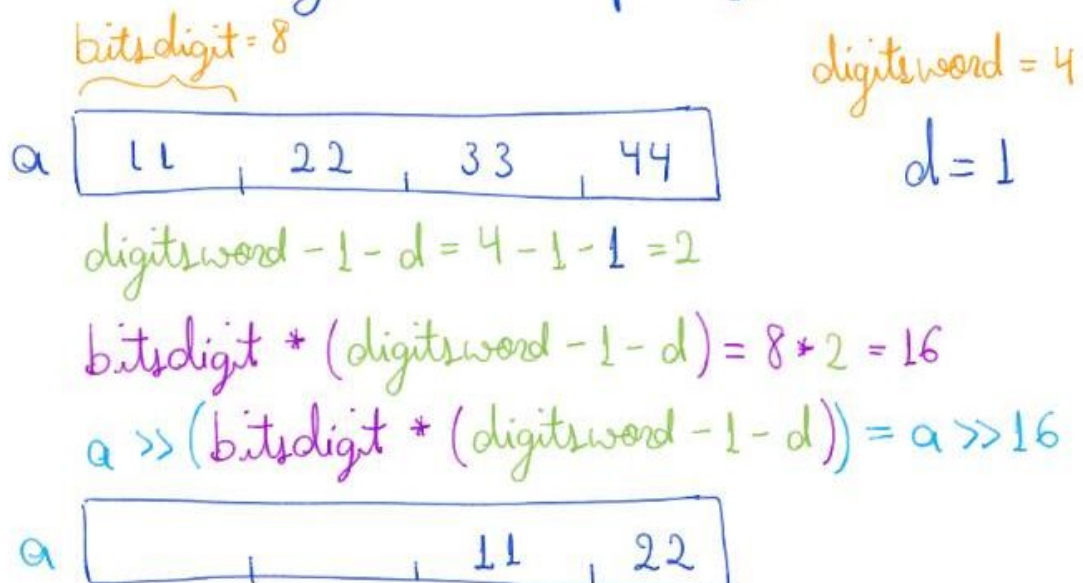 bitsdigit = 8
digitsword = 4
a 11 22 33 44
d = 1
digitsword - 1 - d = 4 - 1 - 1 = 2
bitsdigit * (digitsword - 1 - d) = 8 * 2 = 16
a >> (bitsdigit * (digitsword - 1 - d)) = a >> 16
a 11 22